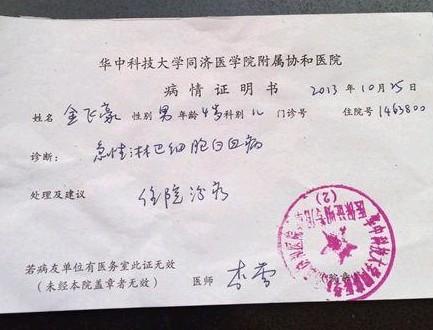 华中科技大学同济医学院附属协和医院
病情证明书 2013年10月25日
姓名 金飞豪 性别 男 年龄 4岁 科别 儿 门诊号 住院号 1463800
诊断: 急性淋巴细胞白血病
处理及建议 住院治疗
若病友单位有医务室此证无效
(未经本院盖章者无效) 医师 李雪
(2)